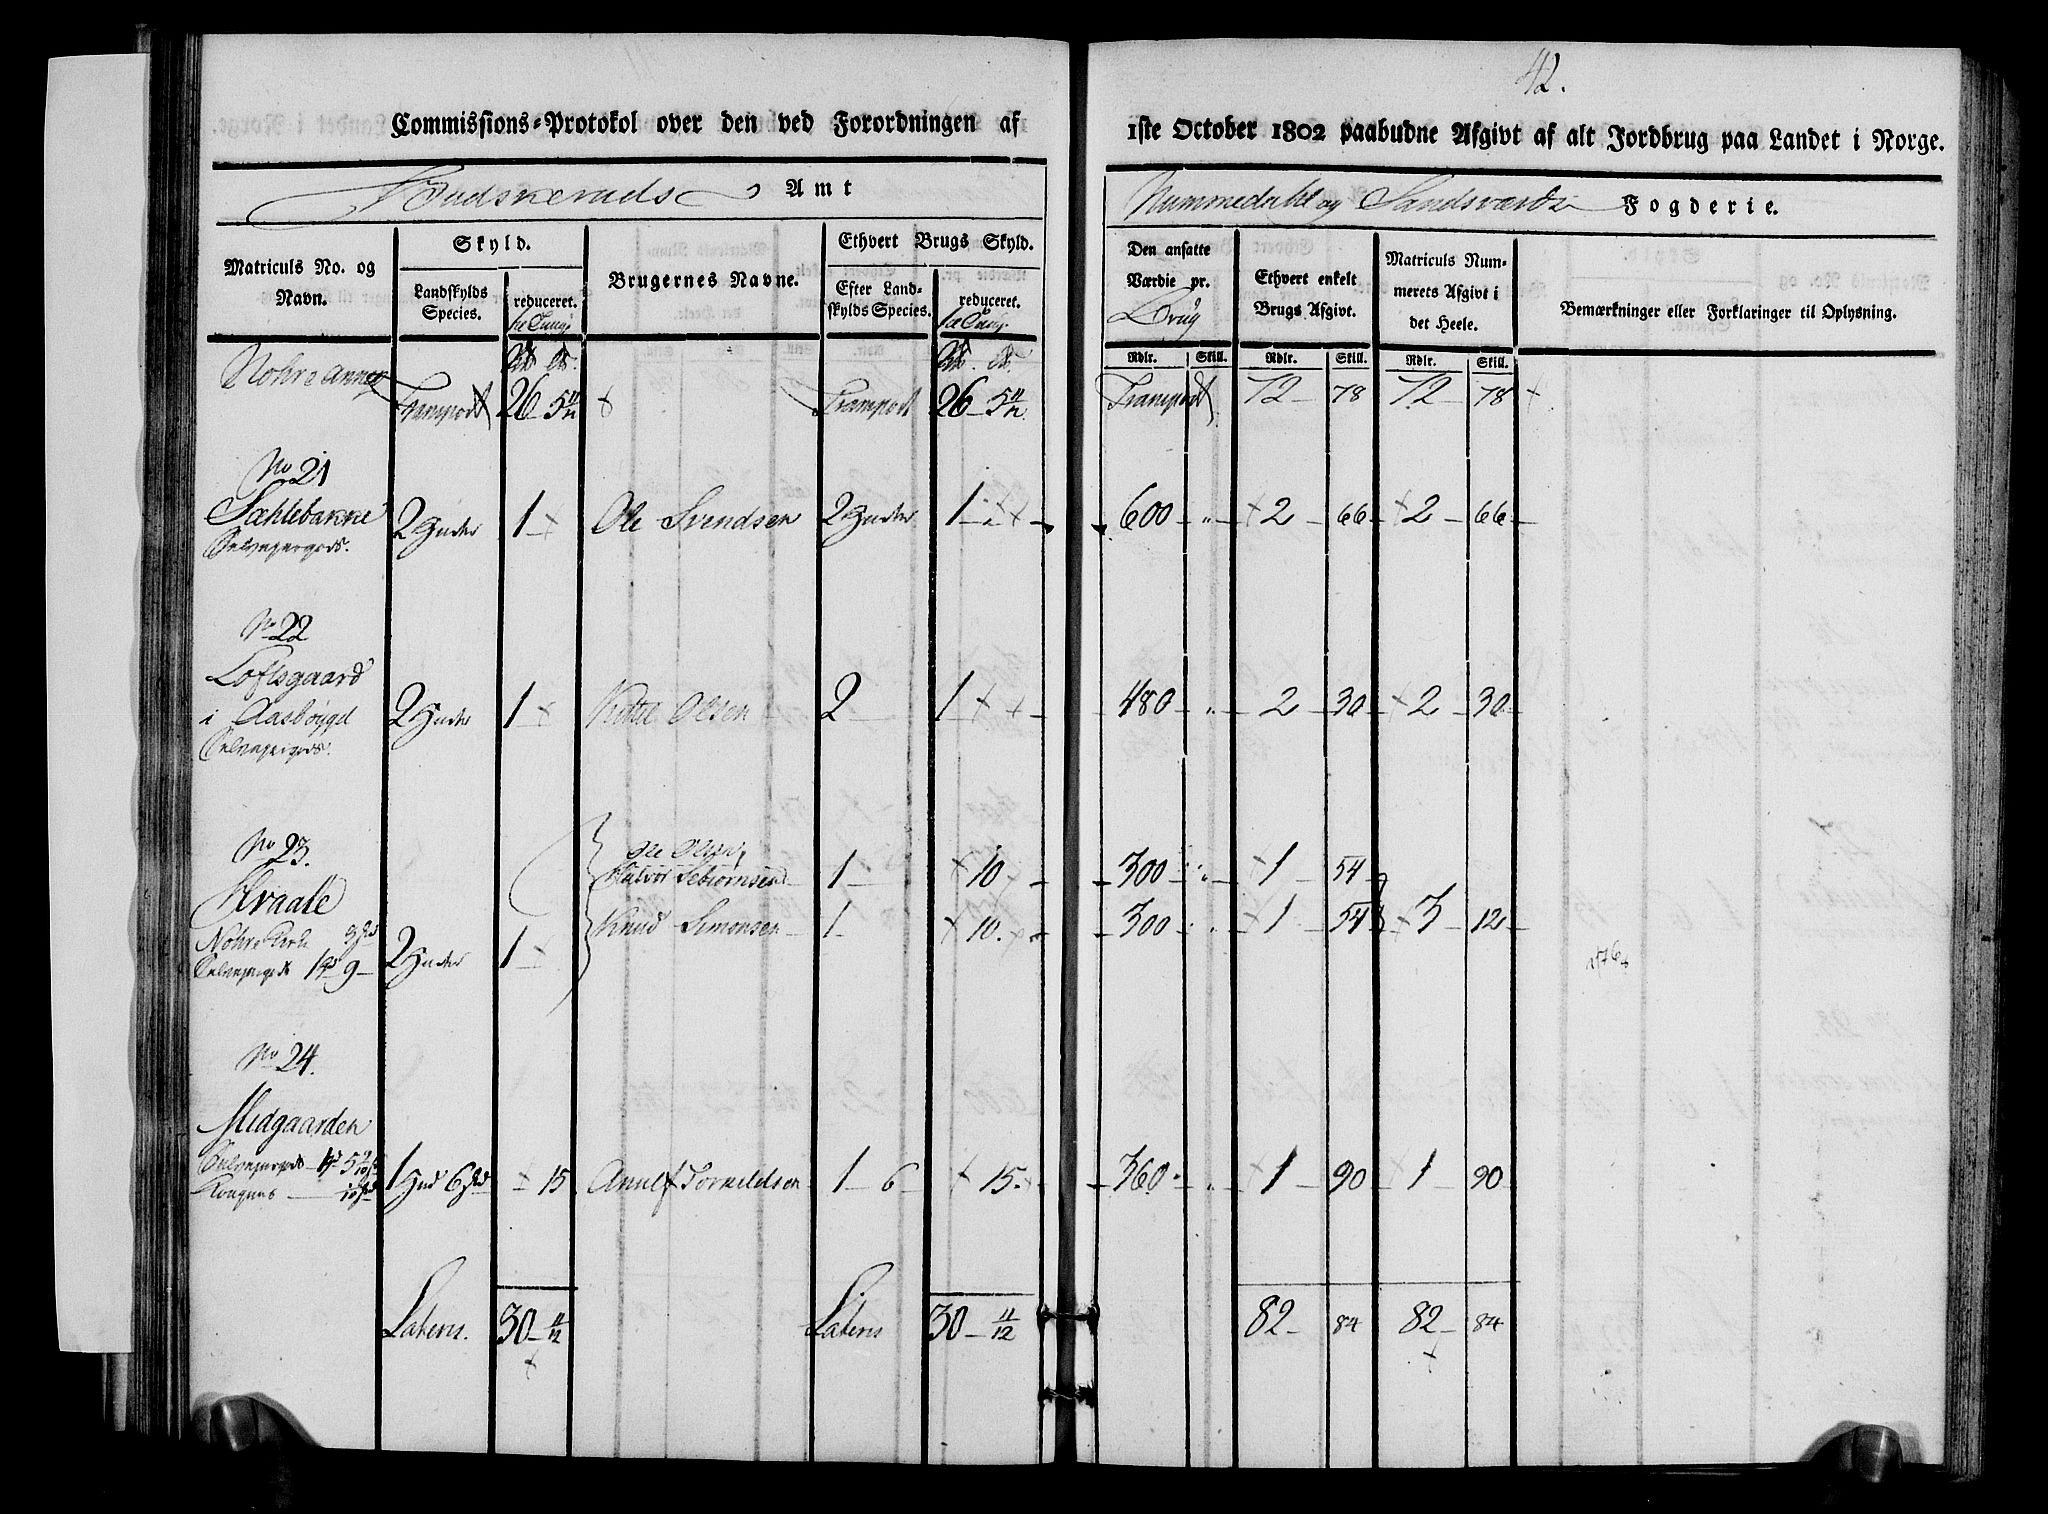 42.
Commissions=Protokol over den ved Forordningen af 1ste October 1802 paabudne Afgivt af alt Jordbrug paa Landet i Norge.
Budskeruds Amt Nummedahl og Sandsværds Fogderie.
Matriculs No. og Navn.
Skyld.
Landskylds Species.
reduceret.
Brugernes Navne.
Ethvert Brugs Skyld.
Efter Landskylds Species.
reduceret.
Den ansatte Værdie pr. Brug
Ethvert enkelt Brugs Afgivt.
Matriculs Nummerets Afgivt i det Heele.
Bemærkninger eller Forklaringer til Oplysning.
Rdlr. Skill. Rdlr. Skill. Rdlr. Skill.
Nohre annex
Transport 26 5 11/12 Transport 26 5 11/12 Transport 72 78 72 78
No 21
Sæhlebakke 2 Huder 1 Ole Svendsen 2 Huder 1 600 " 2 66 2 66
Selvejergods.
No 22
Loftsgaard
i Aasbøygd 2 Huder 1 Kittel Olsen 2 1 480 " 2 30 2 30
Selvejergods.
No 23.
Ole Olsen,
Halvor Sebiørnsen 1 10 300 " 1 54
Hvaale
Knud Simonsen 1 10. 300 " 1 54 3 12
Nohre Kirke 3
Selvejergods 1 9 2 Huder 1
No 24.
Midgaarden
Selvejergods 1 5 1 Hud 6 15 Anulf Torkildsen 1 6 15 360 " 1 90 1 90
Kongens
Lateris. 30 11/12 Lateris 30 11/12 82 84 82 84